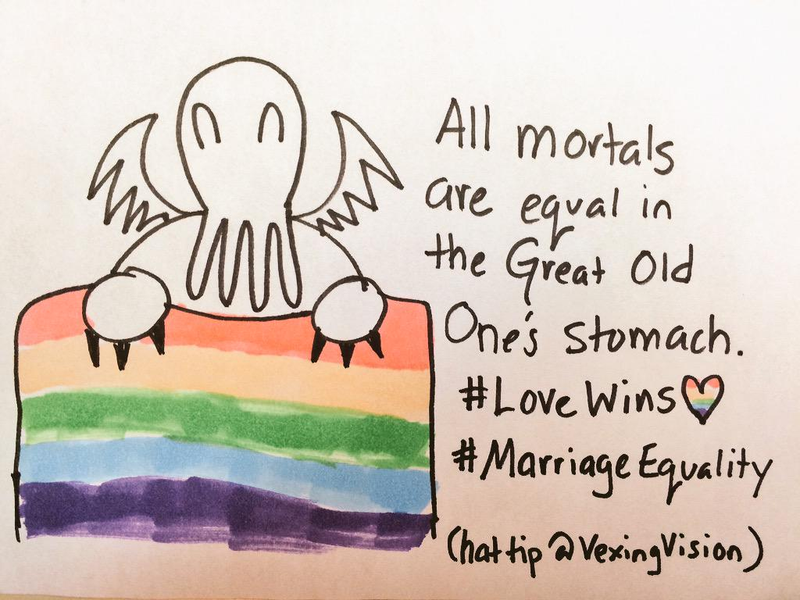 All mortals
are equal in
the Great Old
One's stomach.
#LoveWins
#MarriageEquality
(hat tip @VexingVision)